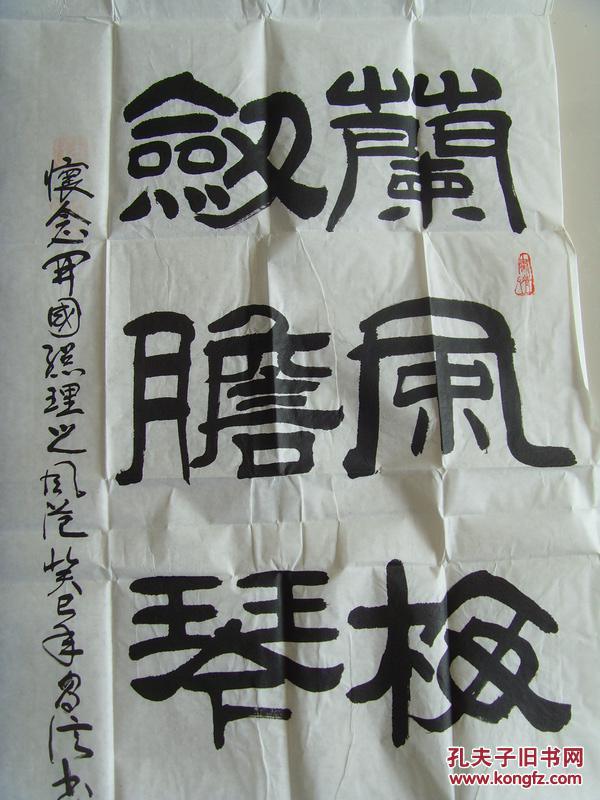 蘭風梅
劒膽琴
懷念開國總理之風范癸巳年書
孔夫子旧书网
www.kongfz.com